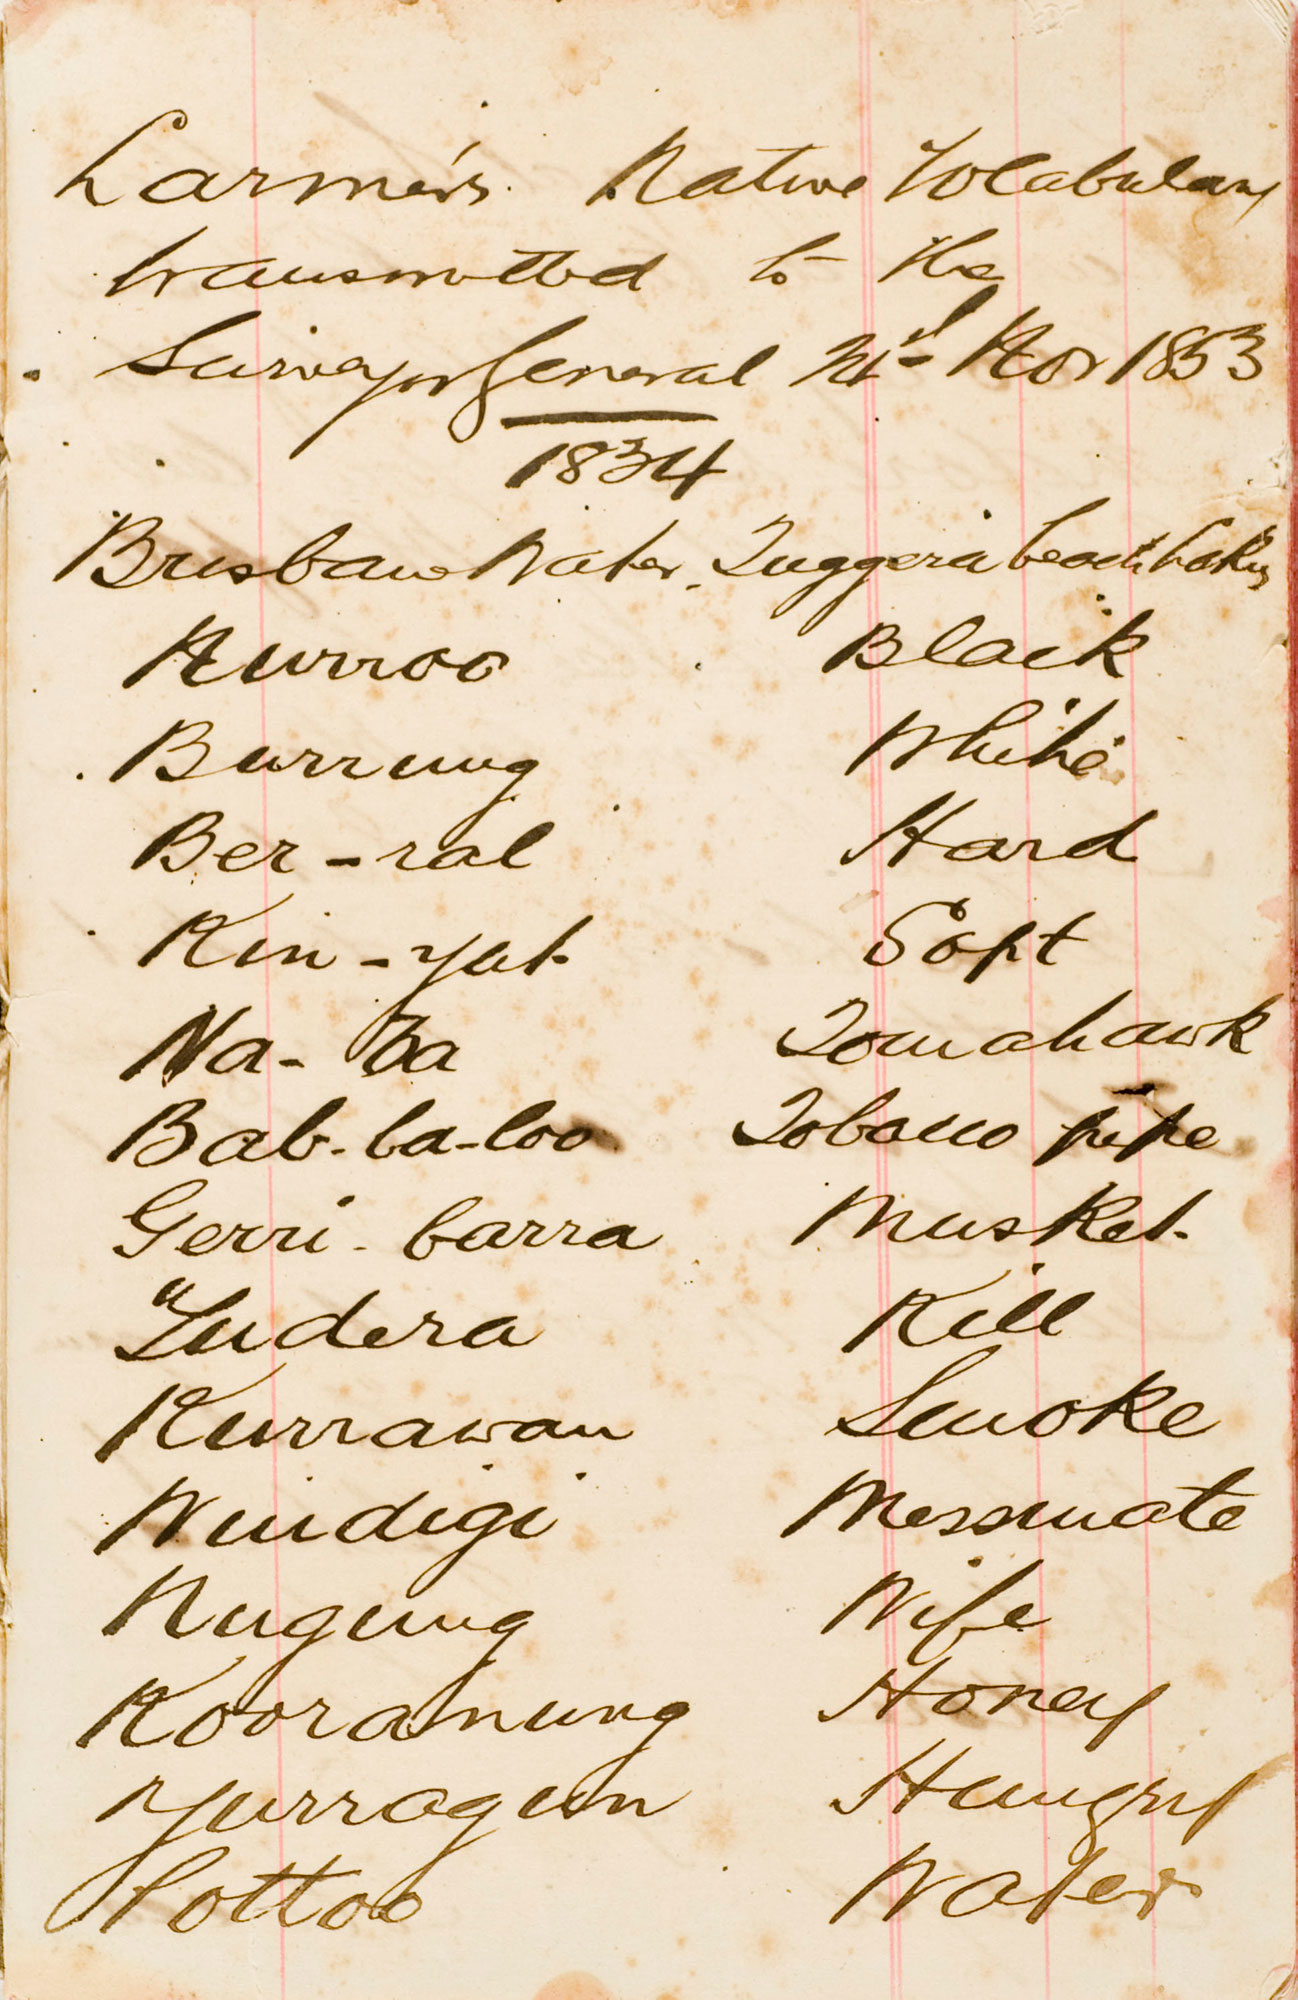 Larmer's Native Vocabulary
transmitted to the
Surveyor General Nov 1853
1834
Brisbane Water Tuggera beach
Nurroo Black
Burrung White
Ber-ral Hard
Kin-yat Soft
Na-Ba Tomahawk
Bab-ba-loo Tobacco pipe
Gerri-barra Musket
Yudera Kill
Kurrawan Smoke
Windigi Messmate
Nugung Wife
Kooranung Honey
Yurragun Hungry
Pottoo Water